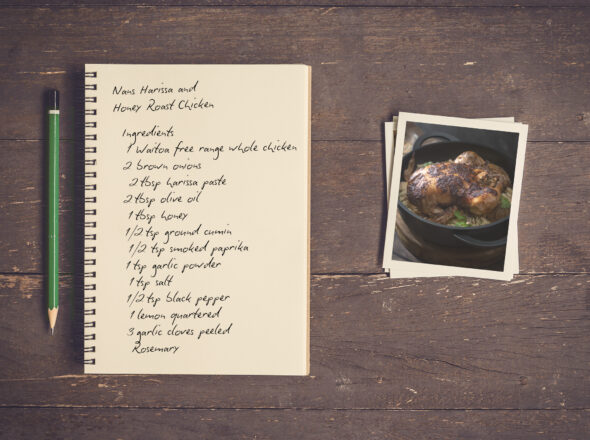 Nans Harissa and
Honey Roast Chicken
Ingredients
1 Waitoa free range whole chicken
2 brown onions
2 tbsp harissa paste
2 tbsp olive oil
1 tbsp honey
1/2 tsp ground cumin
1/2 tsp smoked paprika
1 tsp garlic powder
1 tsp salt
1/2 tsp black pepper
1 lemon quartered
3 garlic cloves peeled
Rosemary